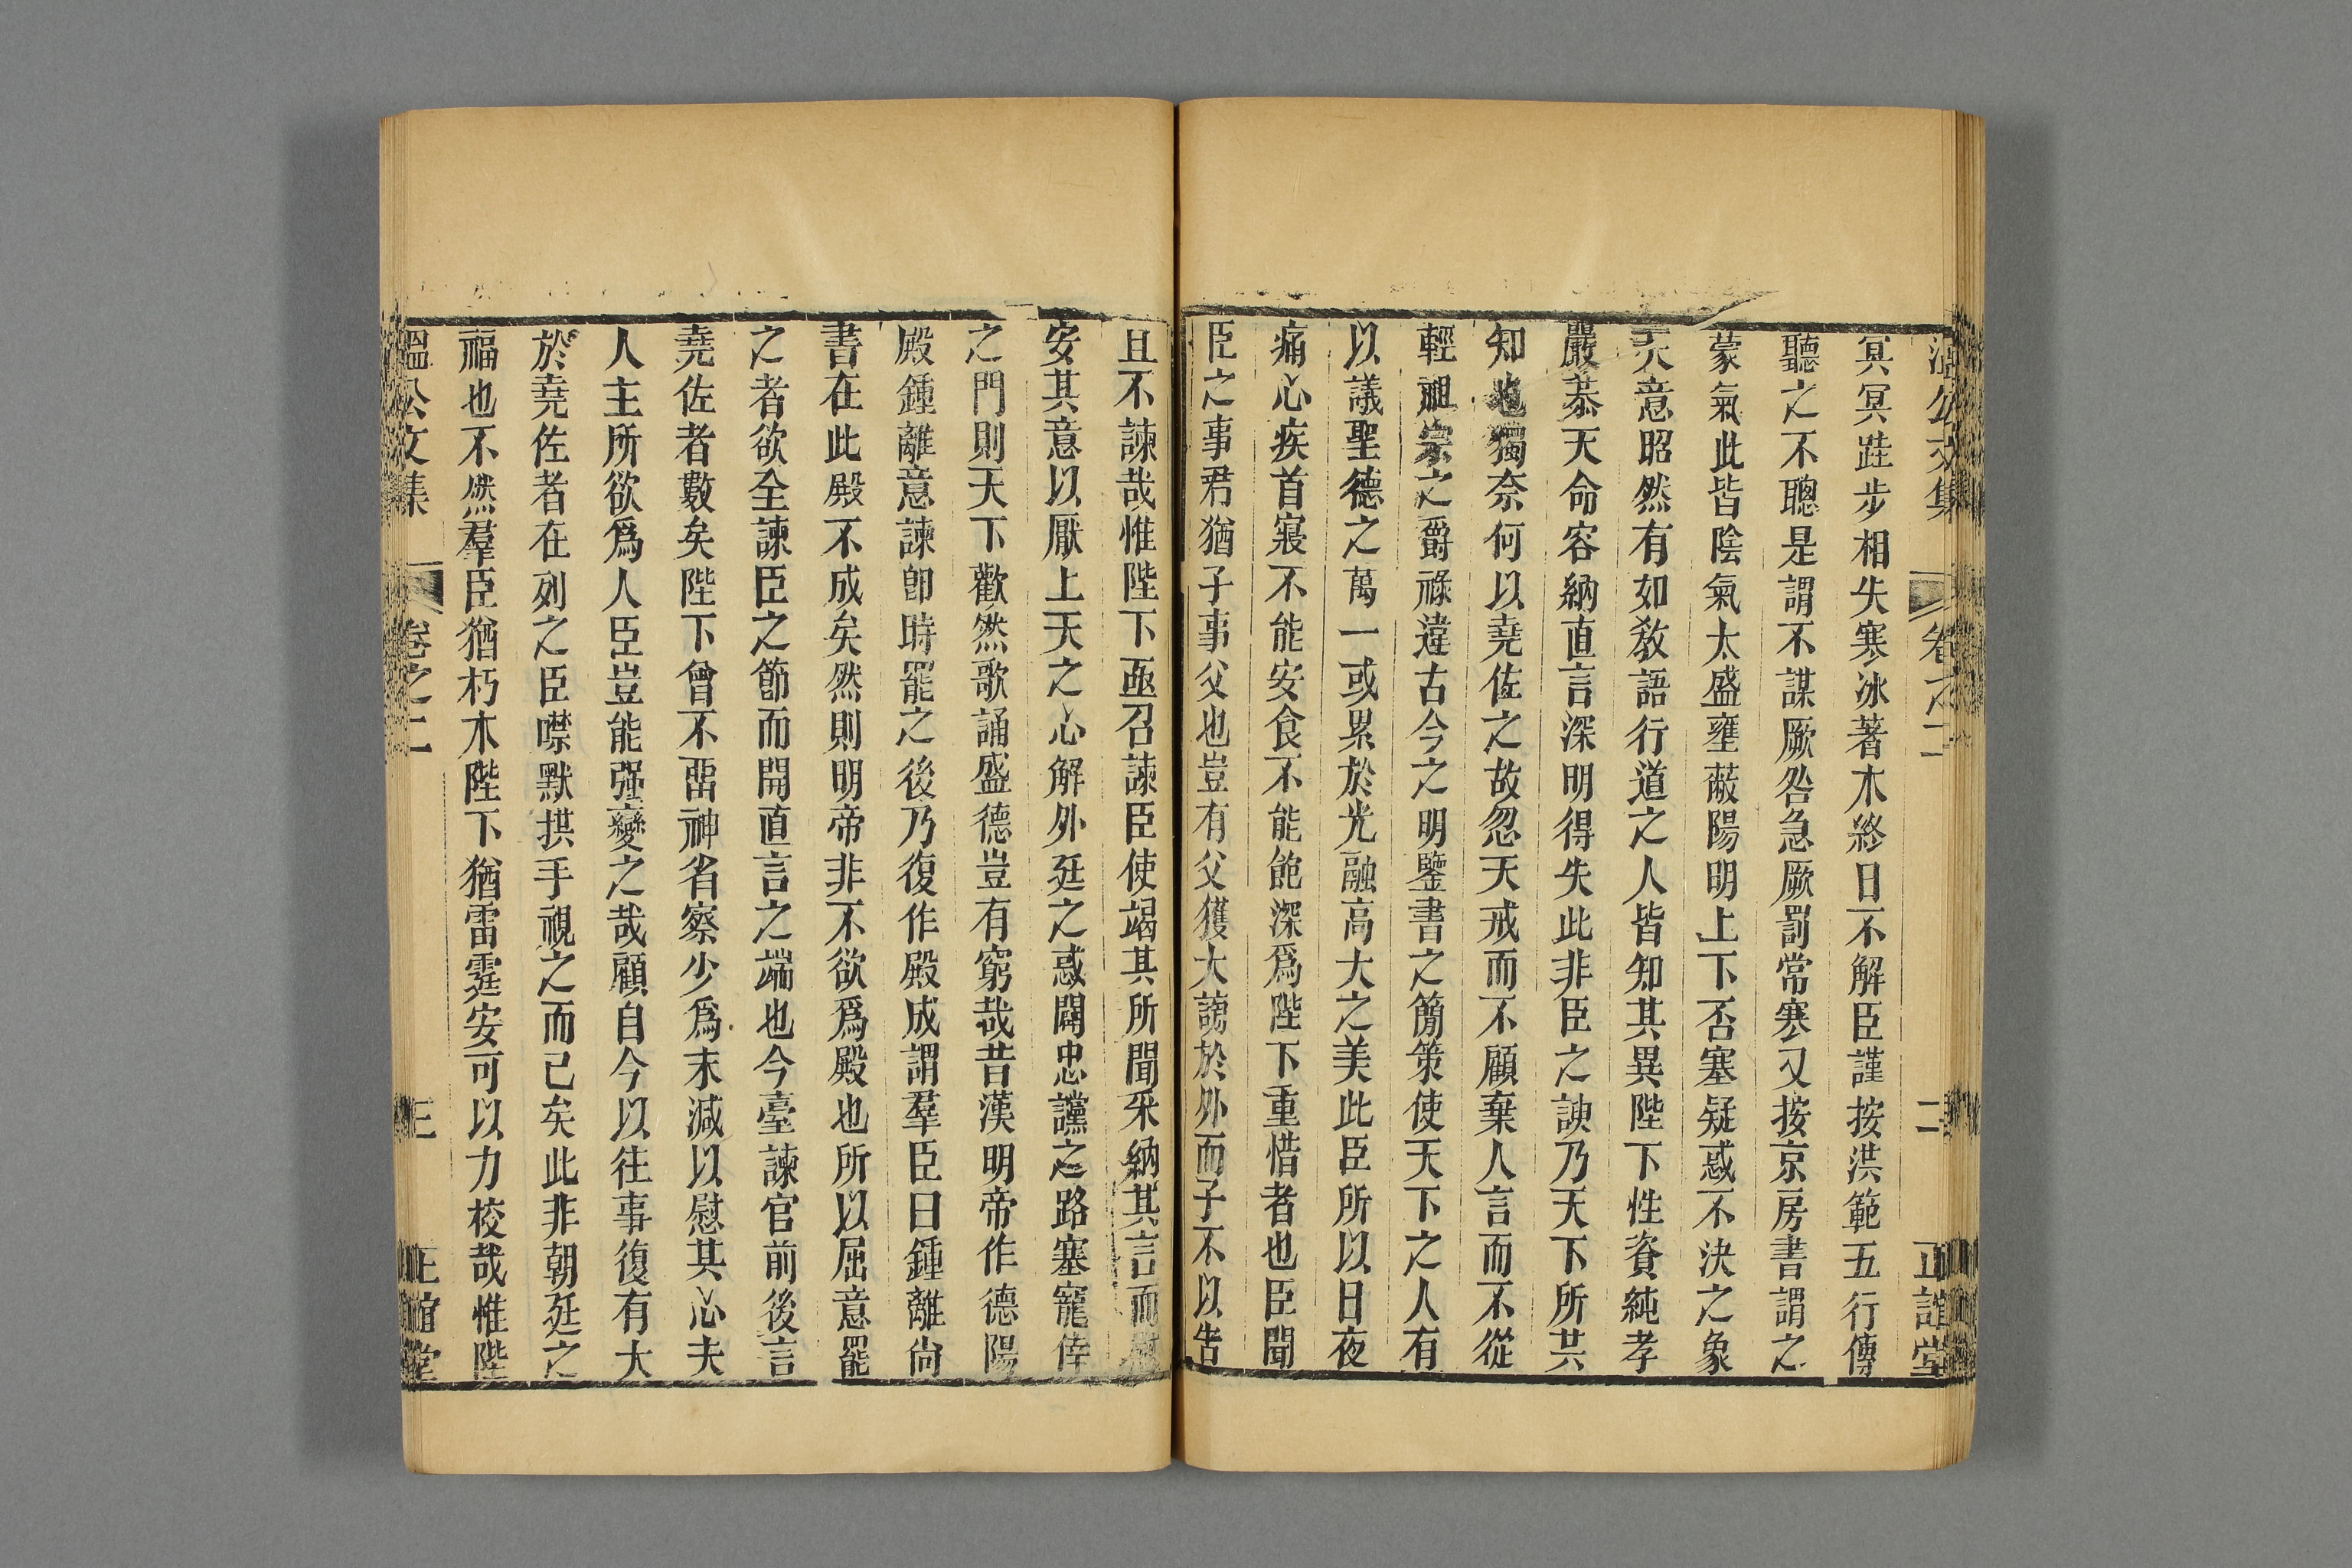 溫公文集 卷之二 二 正誼堂
冥冥跬步相失寒冰著木終日不解臣謹按洪範五行傳
聽之不聰是謂不謀厥咎急厥罰常寒又按京房書謂之
蒙氣此皆陰氣太盛壅蔽陽明上下否塞疑惑不決之象
天意昭然有如敎語行道之人皆知其異陛下性資純孝
嚴恭天命容納直言深明得失此非臣之諛乃天下所共
知也獨奈何以堯佐之故忽天戒而不顧棄人言而不從
輕祖宗之爵祿違古今之明鑒書之簡策使天下之人有
以議聖德之萬一或累於光融高大之美此臣所以日夜
痛心疾首寢不能安食不能飽深爲陛下重惜者也臣聞
臣之事君猶子事父也豈有父獲大謗於外而子不以告
且不諫哉惟陛下亟召諫臣使竭其所聞采納其言而慰
安其意以厭上天之心解外廷之惑闢忠讜之路塞寵倖
之門則天下歡然歌誦盛德豈有窮哉昔漢明帝作德陽
殿鍾離意諫卽時罷之後乃復作殿成謂羣臣曰鍾離尙
書在此殿不成矣然則明帝非不欲爲殿也所以屈意罷
之者欲全諫臣之節而開直言之端也今臺諫官前後言
堯佐者數矣陛下曾不畱神省察少爲末減以慰其心夫
人主所欲爲人臣豈能强變之哉顧自今以往事復有大
於堯佐者在列之臣噤默拱手視之而已矣此非朝廷之
福也不然羣臣猶朽木陛下猶雷霆安可以力校哉惟陛
溫公文集 卷之二 三 正誼堂